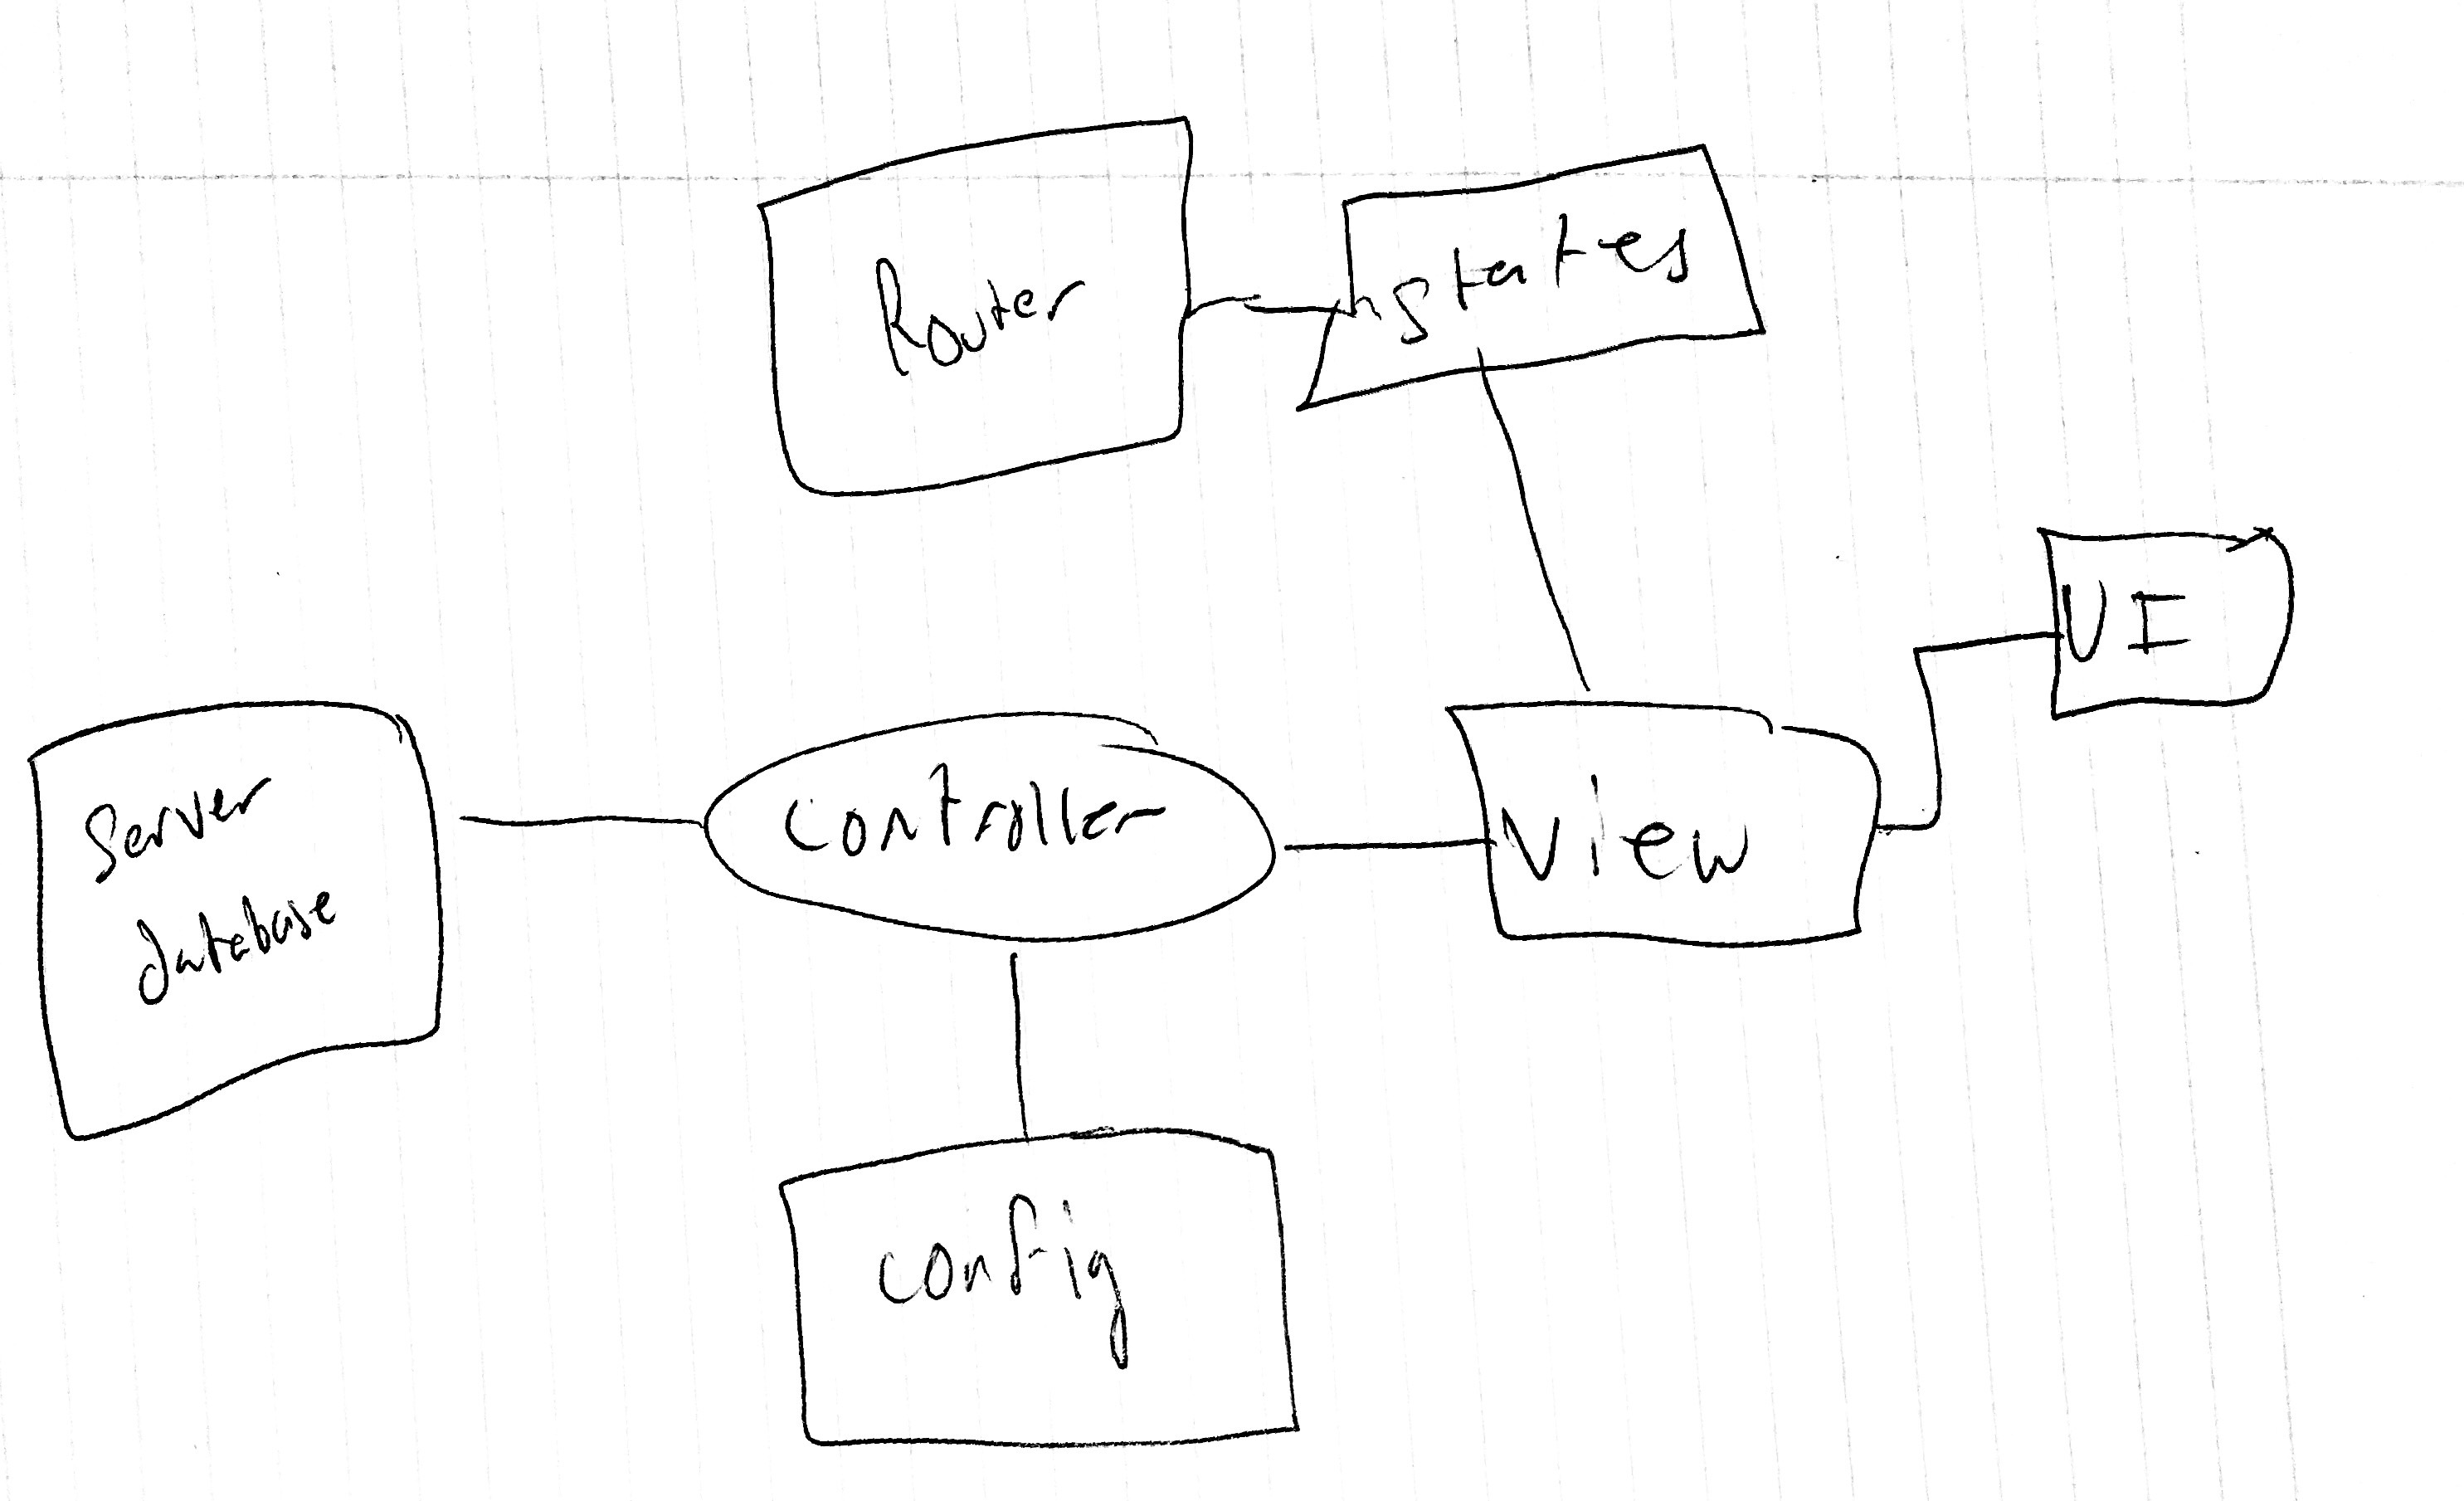 Router
states
UI
Server
database
controller
View
config